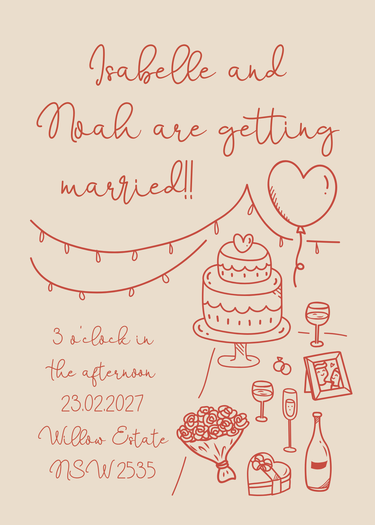 Isabelle and
Noah are getting
married!!
3 o'clock in
the afternoon
23.02.2027
Willow Estate
NSW 2535